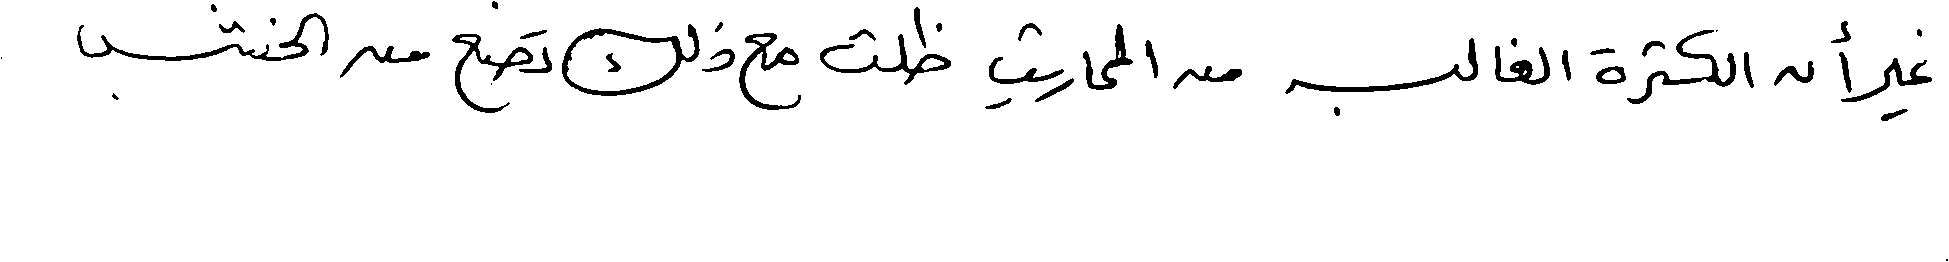 غير أن الكثرة الغالب من المحاريث ظلت مع ذلك تصنع من الخشب